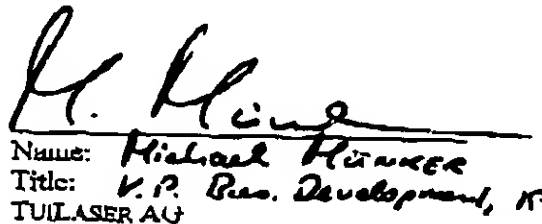 M. Münker
Name: Michael MÜNKER
Title: V.P. Bus. Development,
TUILASER AG